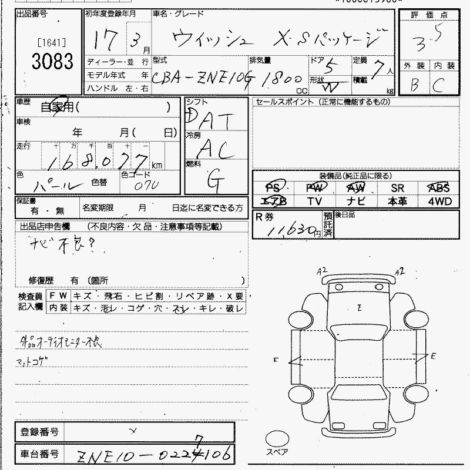 出品番号
[1641]
3083
初年度登録年月
17年3月
車名・グレード
ウィッシュ X・Sパッケージ
評価点
3.5
外装 内装
B C
ディーラー・並行
モデル年式 年
ハンドル 左・右
型式
CBA-ZNE10G
排気量
1800 CC
ドア 5
形状 W
定員 7人
積載 kg
車歴
自家用( )
車検
年 月( 日)
走行
168,027 km
色 パール 色替
色コード 070
シフト
AT
冷房
AC
燃料
G
セールスポイント (正常に機能するもの)
装備品(純正品に限る)
PS PW AW SR ABS
エアB TV ナビ 本革 4WD
保証書
有・無
名変期限 月 日迄に名変できる方
R券
11,630円
預託済
後日品
出品店申告欄 (不良内容・欠品・注意事項等記載)
ナビ不良?
修復歴 有 (箇所 )
検査員記入欄
FW キズ・飛石・ヒビ割・リペア跡・X要
内装 キズ・汚レ・コゲ・穴・スレ・キレ・破レ
マットコゲ
A2 A2
E
E E
スペア
登録番号
車台番号 ZNE10-0227106